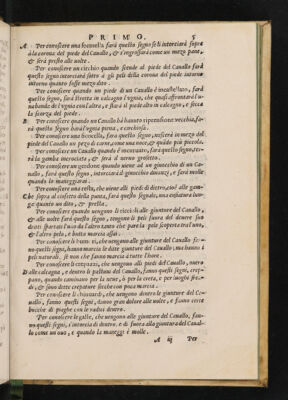 PRIMO. 5
A Per conoscere una formella, farà questo segno se li intorcerà sopra
à la corona del piede del Cavallo, & s'ingrossarà come un mezo pane,
& serà presto alle volte.
Per conoscere un cerchio quando scende al piede del Cavallo farà
questo segno intorcerà sotto à gli peli della corona del piede intorno
intorno quanto fosse mezo dito
Per conoscere quando un piede di un Cavallo è incastellato, farà
questo segno, sarà stretto in calcagno l'ugna, che quasi affrontarà l'u-
na banda de l'ugna con l'altra, e starà il piede alto in calcagno, e secca
la scorza del piede.
B Per conoscere quando un Cavallo ha havuto ripensione vecchia, fa-
rà questo segno harà l'ugna piena, e cerchiosa.
Per conoscere una farà questo segno, metterà in mezo del
piede del Cavallo un pezo di carne, come una noce, & quādo più piccola.
Per conoscere un Cavallo quando è incavato, farà questo segno, ter-
rà la gamba incurvata, & serà il nervo grossetto.
Per conoscere un gardone quando viene ad un ginocchio di un Ca-
vallo, farà questo segno, intorcerà il ginocchio dinanzi, e farà molle
quando lo maneggiarai.
Per conoscere una che viene alli piedi di dietro, cioè alle gam-
C be sopra al della punta, farà questo segnale, una enfiatura lun-
ga quanto un dito, & presta.
Per conoscere quando vengono li ricci alle gionture del Cavallo,
& alle volte farà questo segno, tengono li peli fuora del dovere suo
dritti spartati l'uno da l'altro tanto che pare la pelle scoperta tra l'uno,
& l'altro pelo, e butta marcia assai.
Per conoscere le che vengono alle gionture del Cavallo fan-
no questi segni, hanno marcia le dette gionture del Cavallo, ma hanno i
peli naturali, se non che fanno marcia à tutte l'hore.
Per conoscere le crepazze, che vengono alli piedi del Cavallo, overo
D alle calcagna, e dentro li pasturi del Cavallo, fanno questi segni, crep-
pano, quando caminano per le neve, ò per la creta, e per luoghi fred-
di, & sono dette crepature secche con poca marcia.
Per conoscere li chiavardi, che vengono dentro le gionture del Ca-
vallo, fanno questi segni, danno gran dolore alle volte, e fanno certe
bocche di piaghe con le radici dentro.
Per conoscere le galle, che vengono alle gionture del Cavallo, fan-
no questi segni, s'intorcia di dentro, e di fuora alla giontura del Caval-
lo come un ovo, e quando la maneggi è molle.
A iij Per